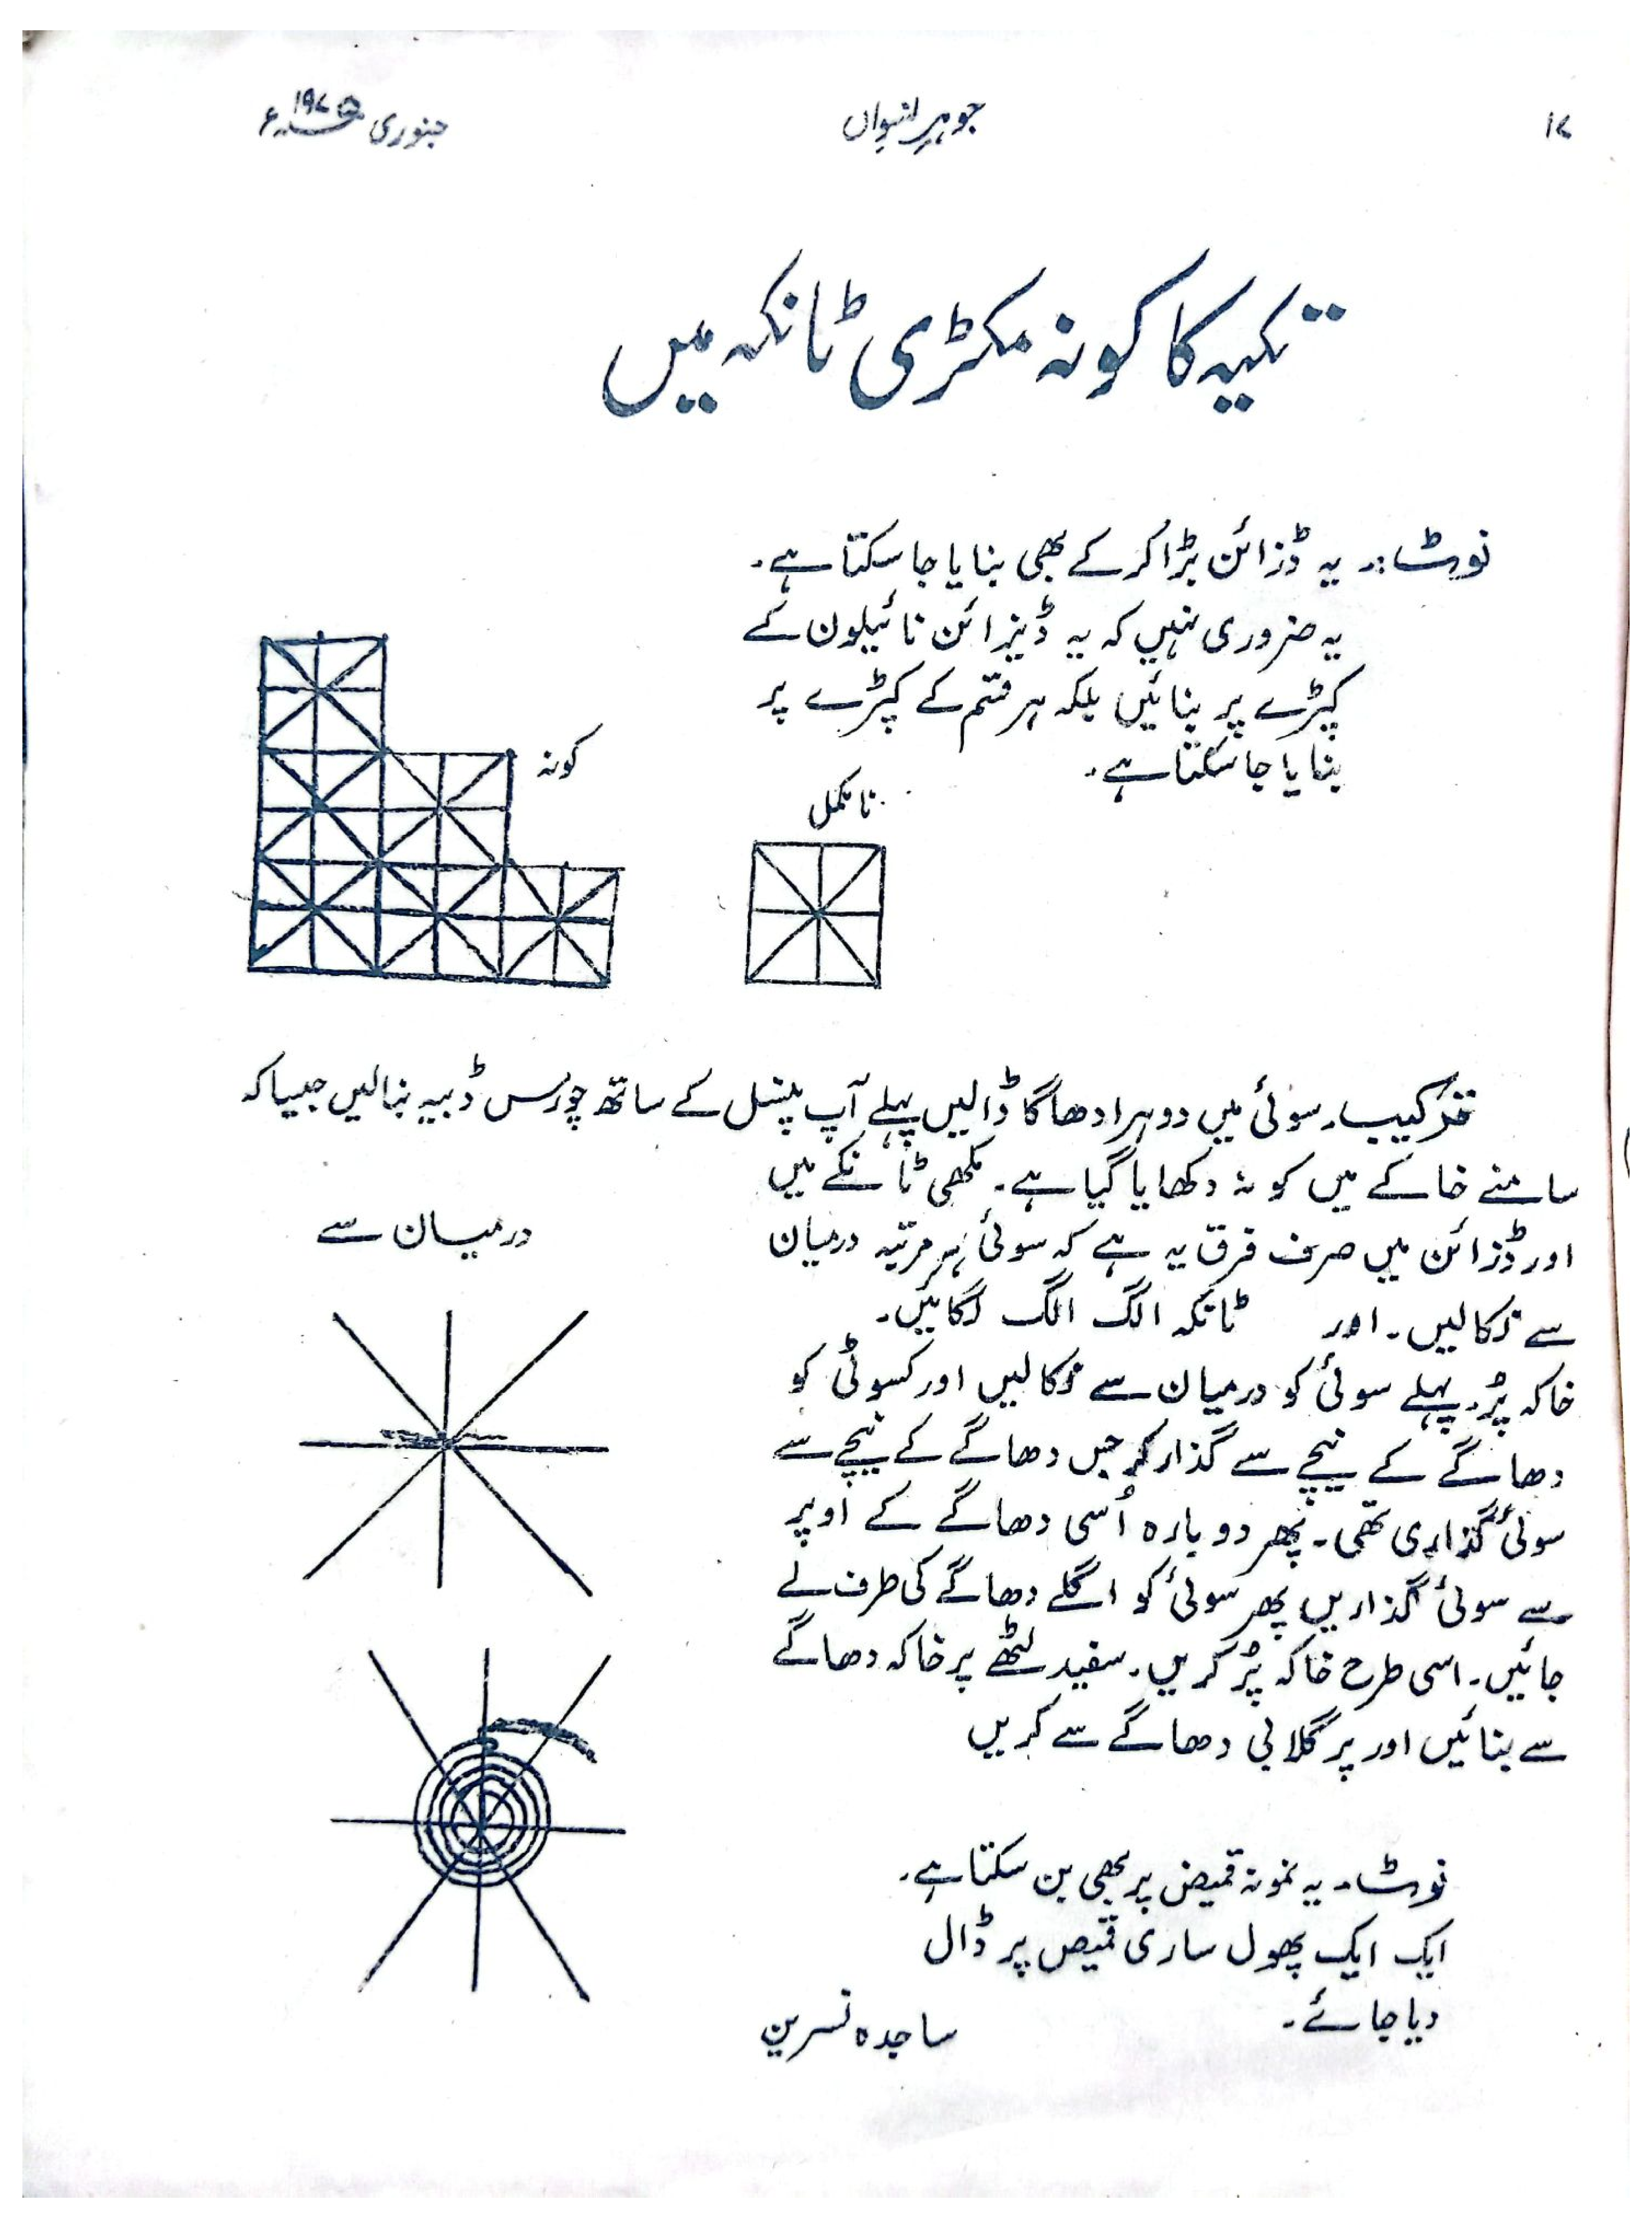 ۱۷
جوہرِ نسواں
جنوری ۱۹۷۵ء
تکیہ کا کونہ مکڑی ٹانکہ میں
نوٹ:۔ یہ ڈزائن بڑا کر کے بھی بنایا جا سکتا ہے۔
یہ ضروری نہیں کہ یہ ڈیزائن نائیلون کے
کپڑے پر بنائیں بلکہ ہر قسم کے کپڑے پر
بنایا جا سکتا ہے۔
کونہ
نامکمل
ترکیب۔ سوئی میں دوہرا دھاگا ڈالیں پہلے آپ پنسل کے ساتھ چورس ڈبیہ بنالیں جیسا کہ
سامنے خاکے میں کونہ دکھایا گیا ہے۔ مکھی ٹانکے میں
اور ڈزائن میں صرف فرق یہ ہے کہ سوئی ہر مرتبہ درمیان
سے نکالیں۔ اور ٹانکہ الگ الگ لگائیں۔
درمیان سے
خاکہ پُر۔ پہلے سوئی کو درمیان سے نکالیں اور کسوٹی کو
دھاگے کے نیچے سے گذار کر جس دھاگے کے نیچے سے
سوئی گذاری تھی۔ پھر دوبارہ اُسی دھاگے کے اوپر
سے سوئی گذاریں پھر سوئی کو اگلے دھاگے کی طرف لے
جائیں۔ اسی طرح خاکہ پُر کریں۔ سفید لٹھے پر خاکہ دھاگے
سے بنائیں اور پر گلابی دھاگے سے کریں
نوٹ۔ یہ نمونہ قمیض پر بھی بن سکتا ہے۔
ایک ایک پھول ساری قمیص پر ڈال
دیا جائے۔
ساجدہ نسرین